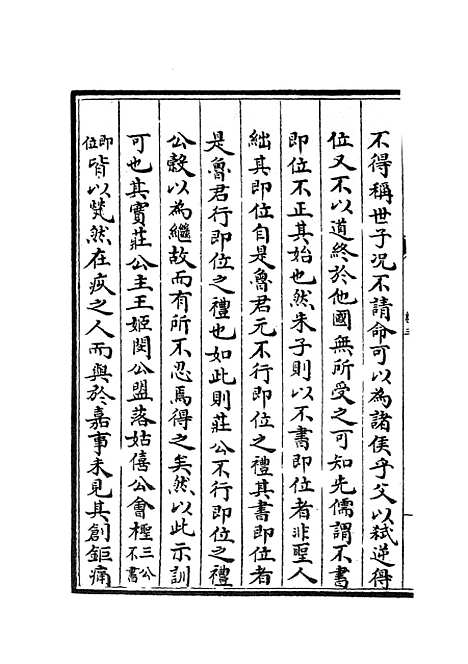 不得稱世子况不請命可以為諸侯乎父以弑逆得
位又不以道終於他國無所受之可知先儒謂不書
即位不正其始也然朱子則以不書即位者非聖人
絀其即位自是魯君元不行即位之禮其書即位者
是魯君行即位之禮也如此則莊公不行即位之禮
公穀以為繼故而有所不忍焉得之矣然以此示訓
可也其實莊公主王姬閔公盟落姑僖公會檉三公不書
即位皆以煢然在疚之人而與於嘉事未見其創鉅痛